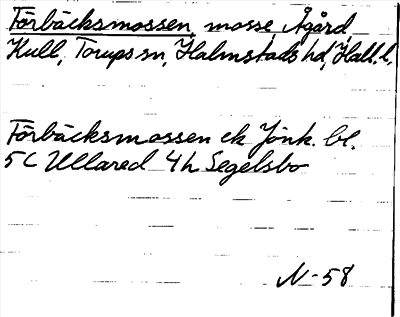 Förbäcksmossen, mosse Ågård
Kull, Torups sn, Halmstads hd, Hall. l.
Förbäcksmossen ek Jönk. bl.
5C Ullared 4h Segelsbo
N-58